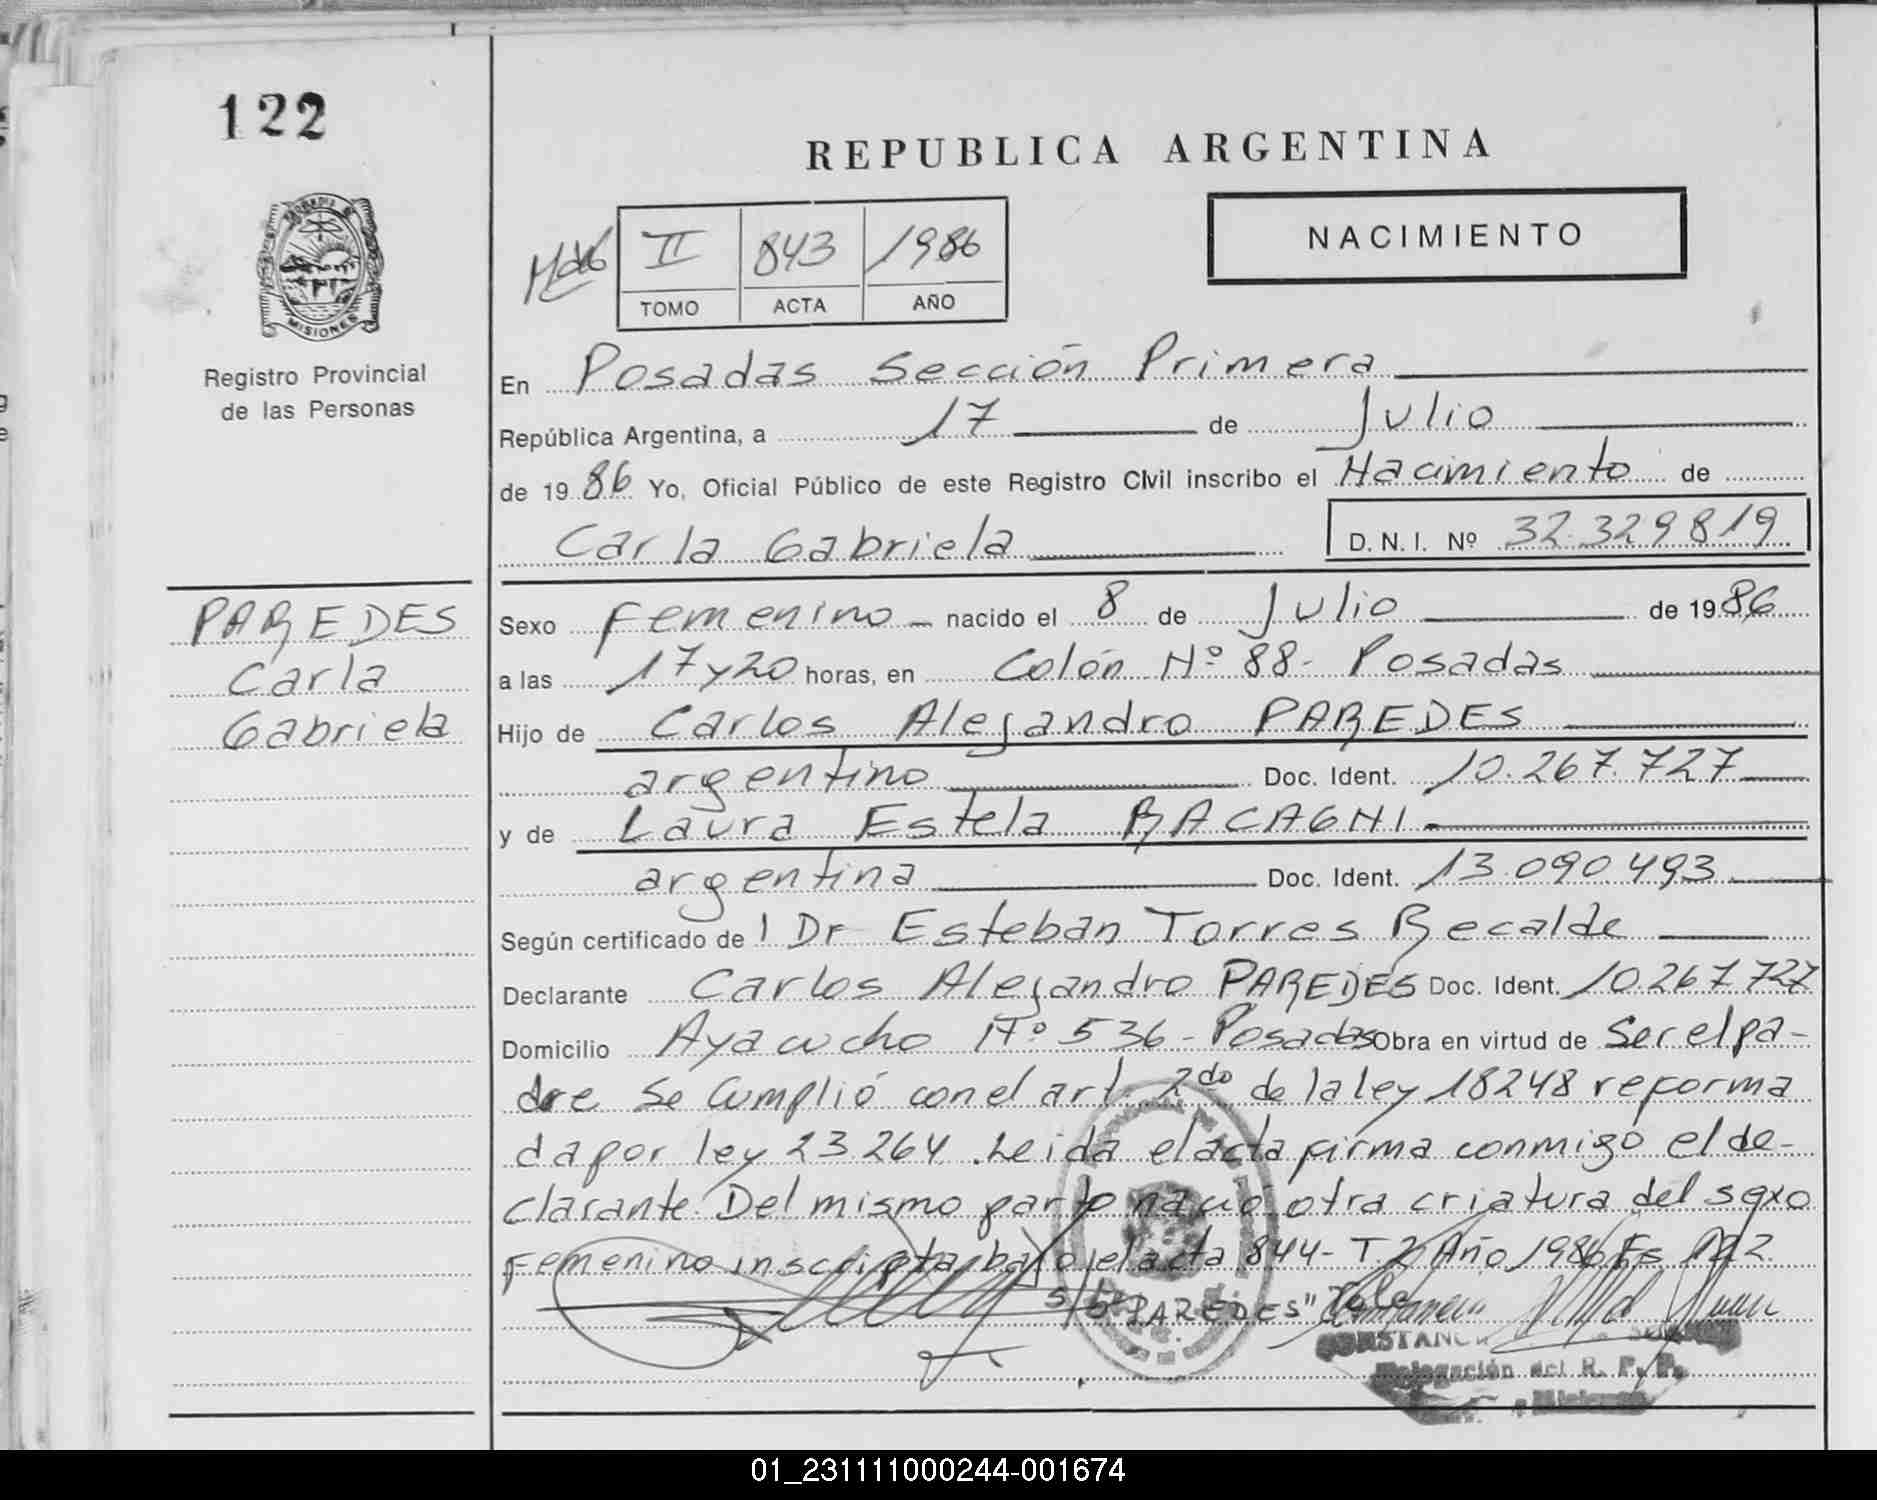 122
REPUBLICA ARGENTINA
NACIMIENTO
II 843 1986
TOMO ACTA AÑO
MISIONES
Registro Provincial
de las Personas
En Posadas Sección Primera
República Argentina, a 17 de Julio
de 1986 Yo, Oficial Público de este Registro Civil inscribo el Nacimiento de
Carla Gabriela D.N.I. Nº 32.329819
PAREDES
Carla
Gabriela
Sexo Femenino nacido el 8 de Julio de 1986
a las 17 y 20 horas, en Colón Nº 88- Posadas
Hijo de Carlos Alejandro PAREDES
argentino Doc. Ident. 10.267.727
y de Laura Estela RACAGNI
argentina Doc. Ident. 13.090.493
Según certificado de l Dr Esteban Torres Recalde
Declarante Carlos Alejandro PAREDES Doc. Ident. 10.267.727
Domicilio Ayacucho Nº 536 - Posadas Obra en virtud de Ser el pa-
dre Se Cumplió con el art. 2do de la ley 18248 reforma
da por ley 23.264. Leida el acta firma conmigo el de-
clarante. Del mismo parto nació otra criatura del sexo
Femenino inscripta bajo el acta 844- T.2 Año 1986 Fs 122
S/b "PAREDES" Vale
Delegación del R. P. P.
Misiones
01_231111000244-001674